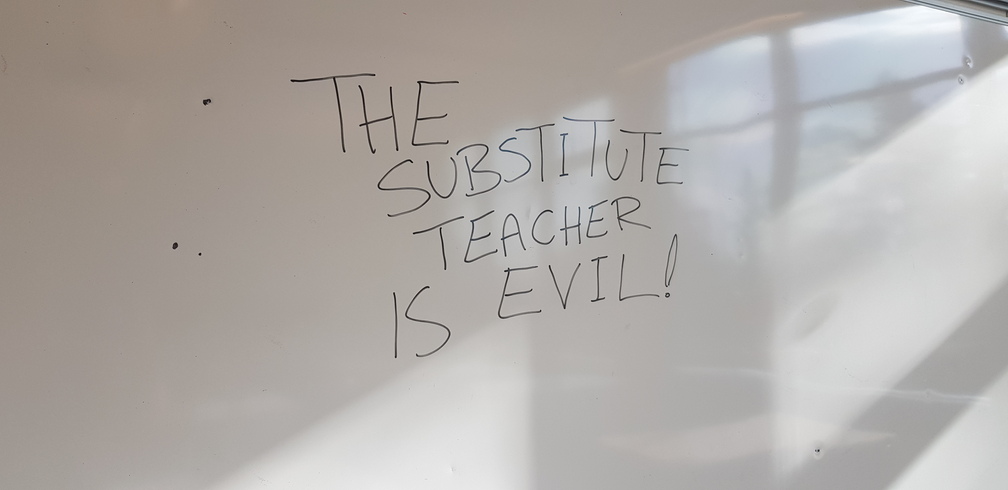 THE
SUBSTITUTE
TEACHER
IS EVIL!